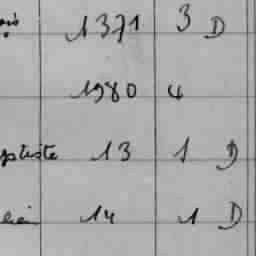 1371 3 D
1980 4
ptiste 13 1 D
14 1 D